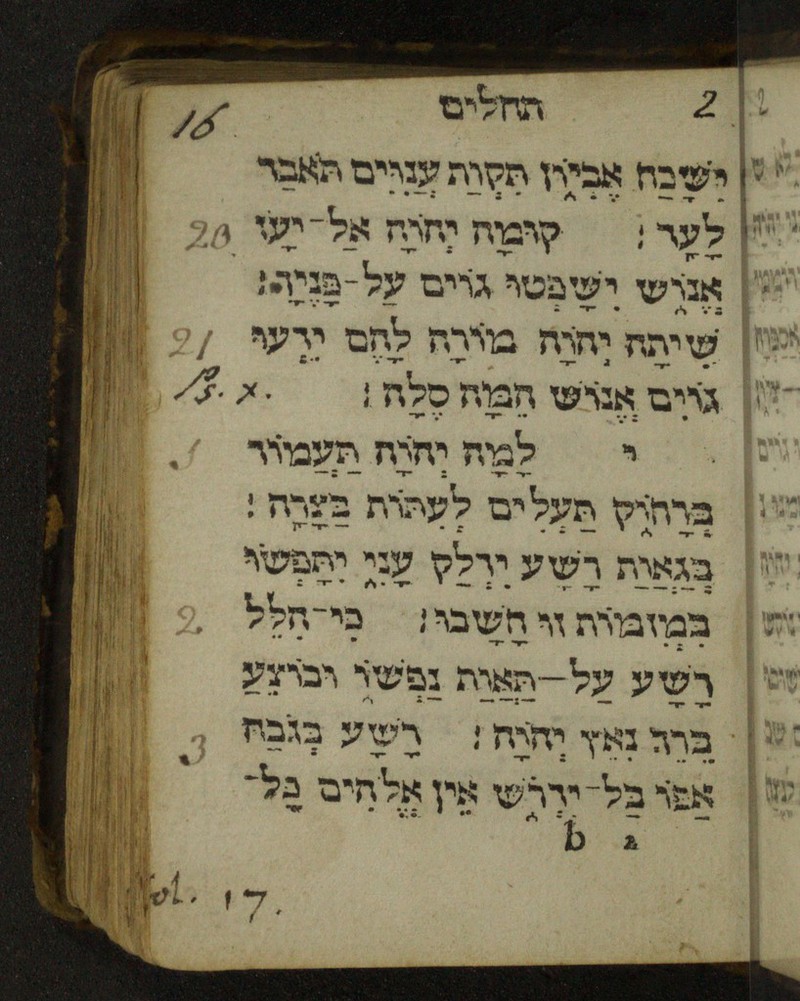 2 תהלים 16
יִשָּׁכַח אֶבְיוֹן תִּקְוַת עֲנִיִּים תֹּאבַד
לָעַד: קוּמָה יְהֹוָה אַל־יָעֹז 20
אֱנוֹשׁ יִשָּׁפְטוּ גוֹיִם עַל־פָּנֶיךָ:
שִׁיתָה יְהֹוָה מוֹרָה לָהֶם יֵדְעוּ 21
גוֹיִם אֱנוֹשׁ הֵמָּה סֶלָה: Ps. x.
י לָמָה יְהֹוָה תַּעֲמוֹד 1
בְּרָחוֹק תַּעְלִים לְעִתּוֹת בַּצָּרָה:
בְּגַאֲוַת רָשָׁע יִדְלַק עָנִי יִתָּפְשׂוּ
בִּמְזִמּוֹת זוּ חָשָׁבוּ: כִּי־הִלֵּל 2
רָשָׁע עַל־תַּאֲוַת נַפְשׁוֹ וּבוֹצֵעַ
בֵּרֵךְ נִאֵץ יְהֹוָה: רָשָׁע כְּגֹבַהּ 3
אַפּוֹ בַּל־יִדְרֹשׁ אֵין אֱלֹהִים כָּל־
b 2
Fol. 17.